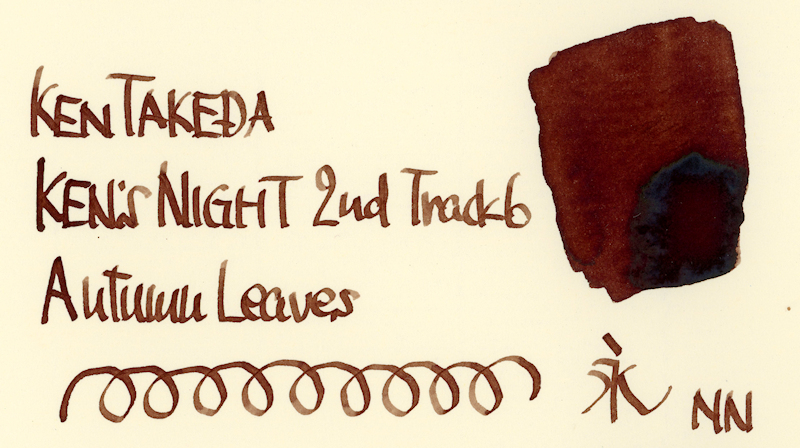 KEN TAKEDA
KEN'S NIGHT 2nd Track6
Autumn Leaves
永 NN